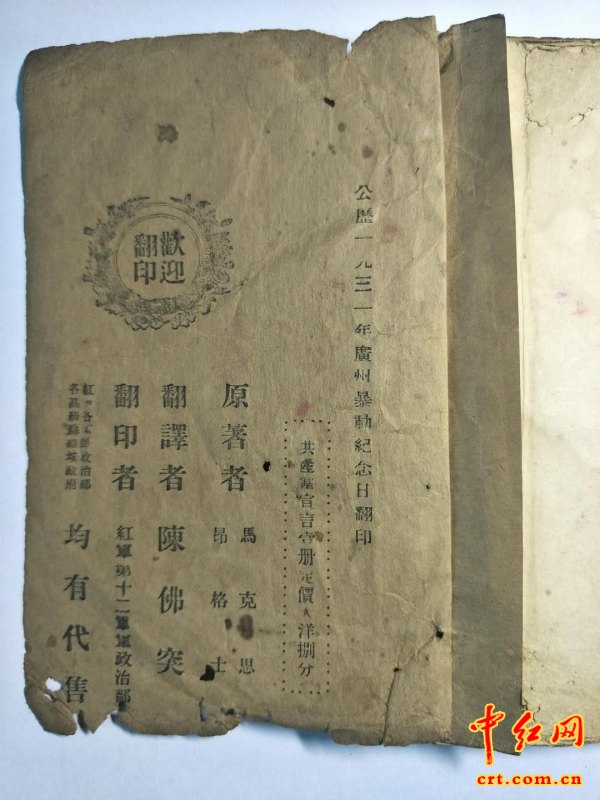 公歷一九三一年廣州暴動紀念日翻印
共產黨宣言 册定價大洋捌分
原著者 馬克思
昂格士
翻譯者 陳佛突
翻印者 紅軍第十二軍軍政治部
紅 各 政治部
各高 政府
均有代售
歡迎
翻印
中红网
crt.com.cn